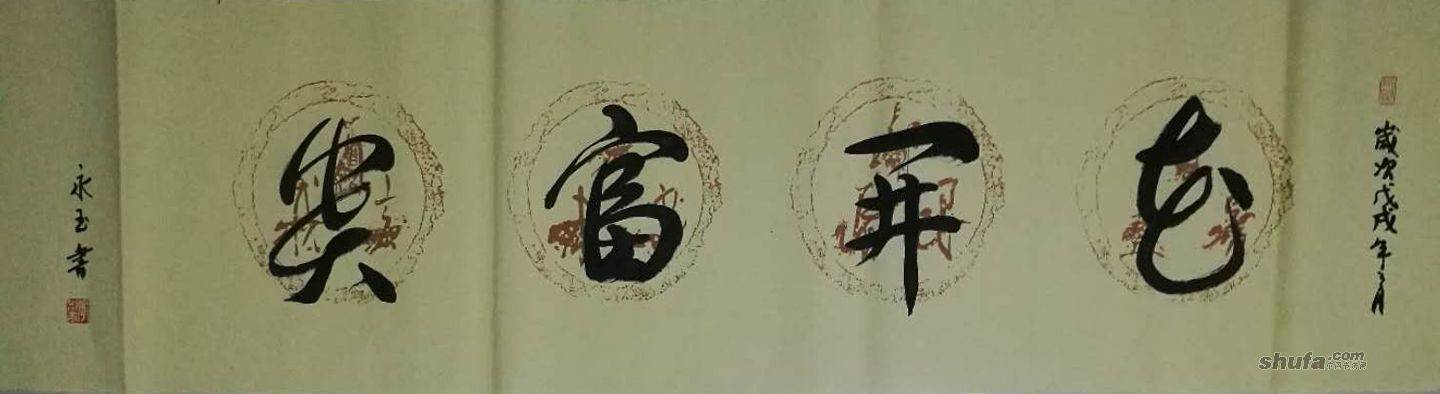 歲次戊戌年二月
花開富貴
永玉書
shufa.com